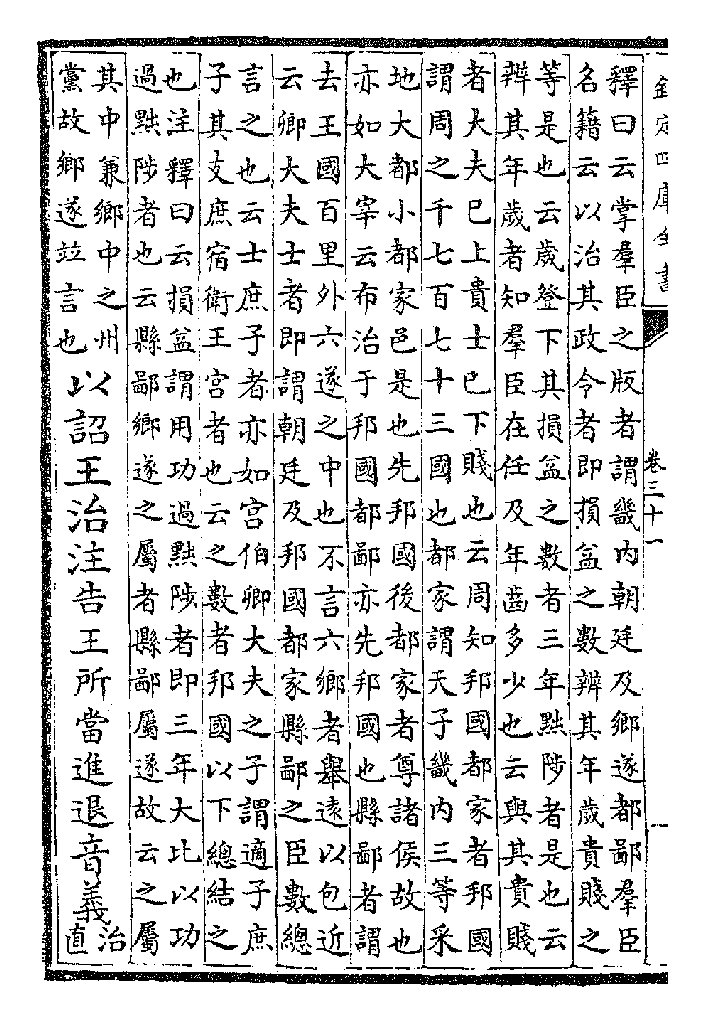 欽定四庫全書
卷三十一
釋曰云掌羣臣之版者謂畿内朝廷及鄉遂都鄙羣臣
名籍云以治其政令者即損益之數辨其年歲貴賤之
等是也云歲登下其損益之數者三年黜陟者是也云
辨其年歲者知羣臣在任及年齒多少也云與其貴賤
者大夫巳上貴士巳下賤也云周知邦國都家者邦國
謂周之千七百七十三國也都家謂天子畿内三等采
地大都小都家邑是也先邦國後都家者尊諸侯故也
亦如大宰云布治于邦國都鄙亦先邦國也縣鄙者謂
去王國百里外六遂之中也不言六鄉者舉遠以包近
云卿大夫士者即謂朝廷及邦國都家縣鄙之臣數總
言之也云士庶子者亦如宫伯卿大夫之子謂適子庶
子其支庶宿衛王宫者也云之數者邦國以下總結之
也注釋曰云損益謂用功過黜陟者即三年大比以功
過黜陟者也云縣鄙鄉遂之屬者縣鄙屬遂故云之屬
其中兼鄉中之州
黨故鄉遂竝言也
以詔王治注告王所當進退音義
治
直